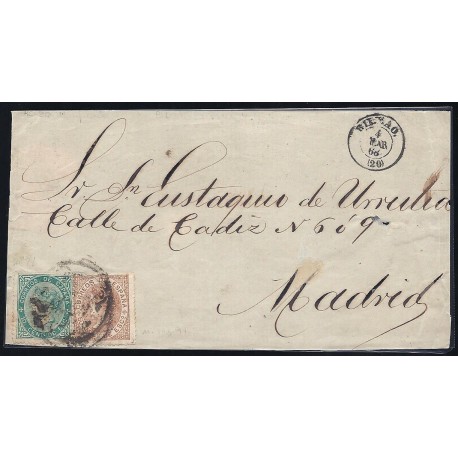 BILBAO.
4
MAR
68
(20)
Sr. Dn Eustaquio de Urrutia
Calle de Cadiz Nº 69
Madrid
CORREOS DE ESPAÑA
ESPAÑA